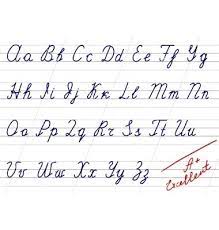 Aa Bb Cc Dd Ee Ff Gg
Hh Ii Jj Kk Ll Mm Nn
Oo Pp Qq Rr Ss Tt Uu
Vv Ww Xx Yy Zz
A+
Excellent